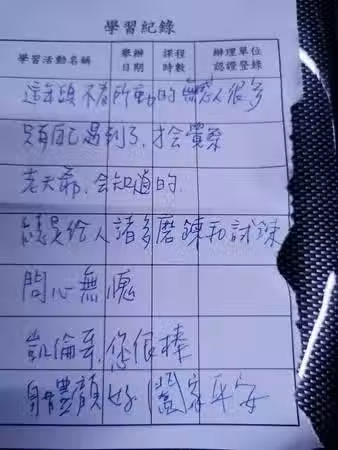 學習紀錄
學習活動名稱 舉辦日期 課程時數 辦理單位認證登錄
這年頭不為所動的無感人很多
只有自己遇到了,才会覺察
老天爺,会知道的.
總是給人諸多磨鍊和試鍊
問心無愧
凱倫哥,您很棒
身體顧好 闔家平安